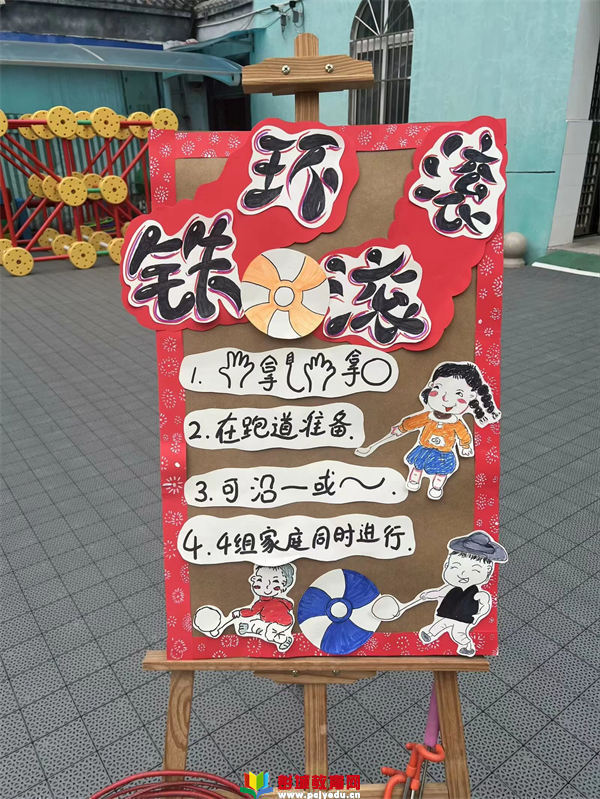 铁环滚滚
1. 拿 拿
2.在跑道准备.
3.可沿一或～.
4.4组家庭同时进行.
彭聊教育网
www.pelyedu.cn